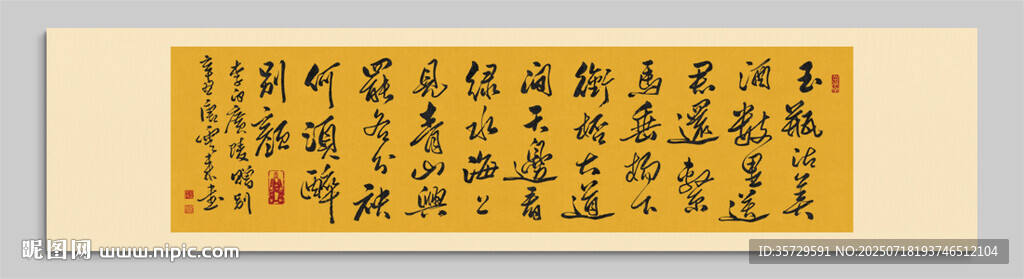 玉瓶沽美
酒數里送
君還繫
馬垂楊下
銜桮大道
間天邊看
绿水海上
見青山興
罷各分袂
何須醉
别顔
李白廣陵赠别
辛丑雲書
昵图网 www.nipic.com
ID:35729591 NO:20250718193746512104